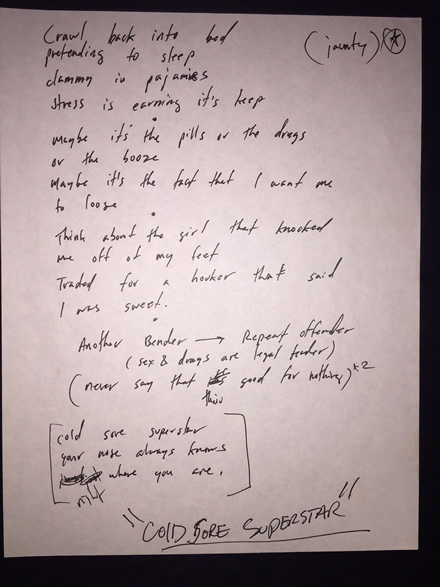 Crawl back into bed
(jaunty) *
pretending to sleep
clammy in pajamies
stress is earning it's keep
maybe it's the pills or the drugs
or the booze
Maybe it's the fact that I want me
to loose
Think about the girl that knocked
me off of my feet
Traded for a hooker that said
I was sweet.
Another Bender → Repeat offender
(sex & drugs are legal tender)
(never say that good for nothing) x2
this
cold sore superstar
your nose always knows
where you are.
"COLD SORE SUPERSTAR"